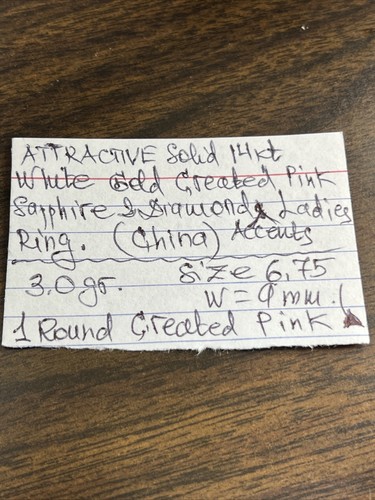 ATTRACTIVE Solid 14kt
White Gold Created Pink
Sapphire & Diamond Ladies
Ring. (China) Accents
3.0gr. Size 6,75
W = 9 mm.
1 Round Created Pink